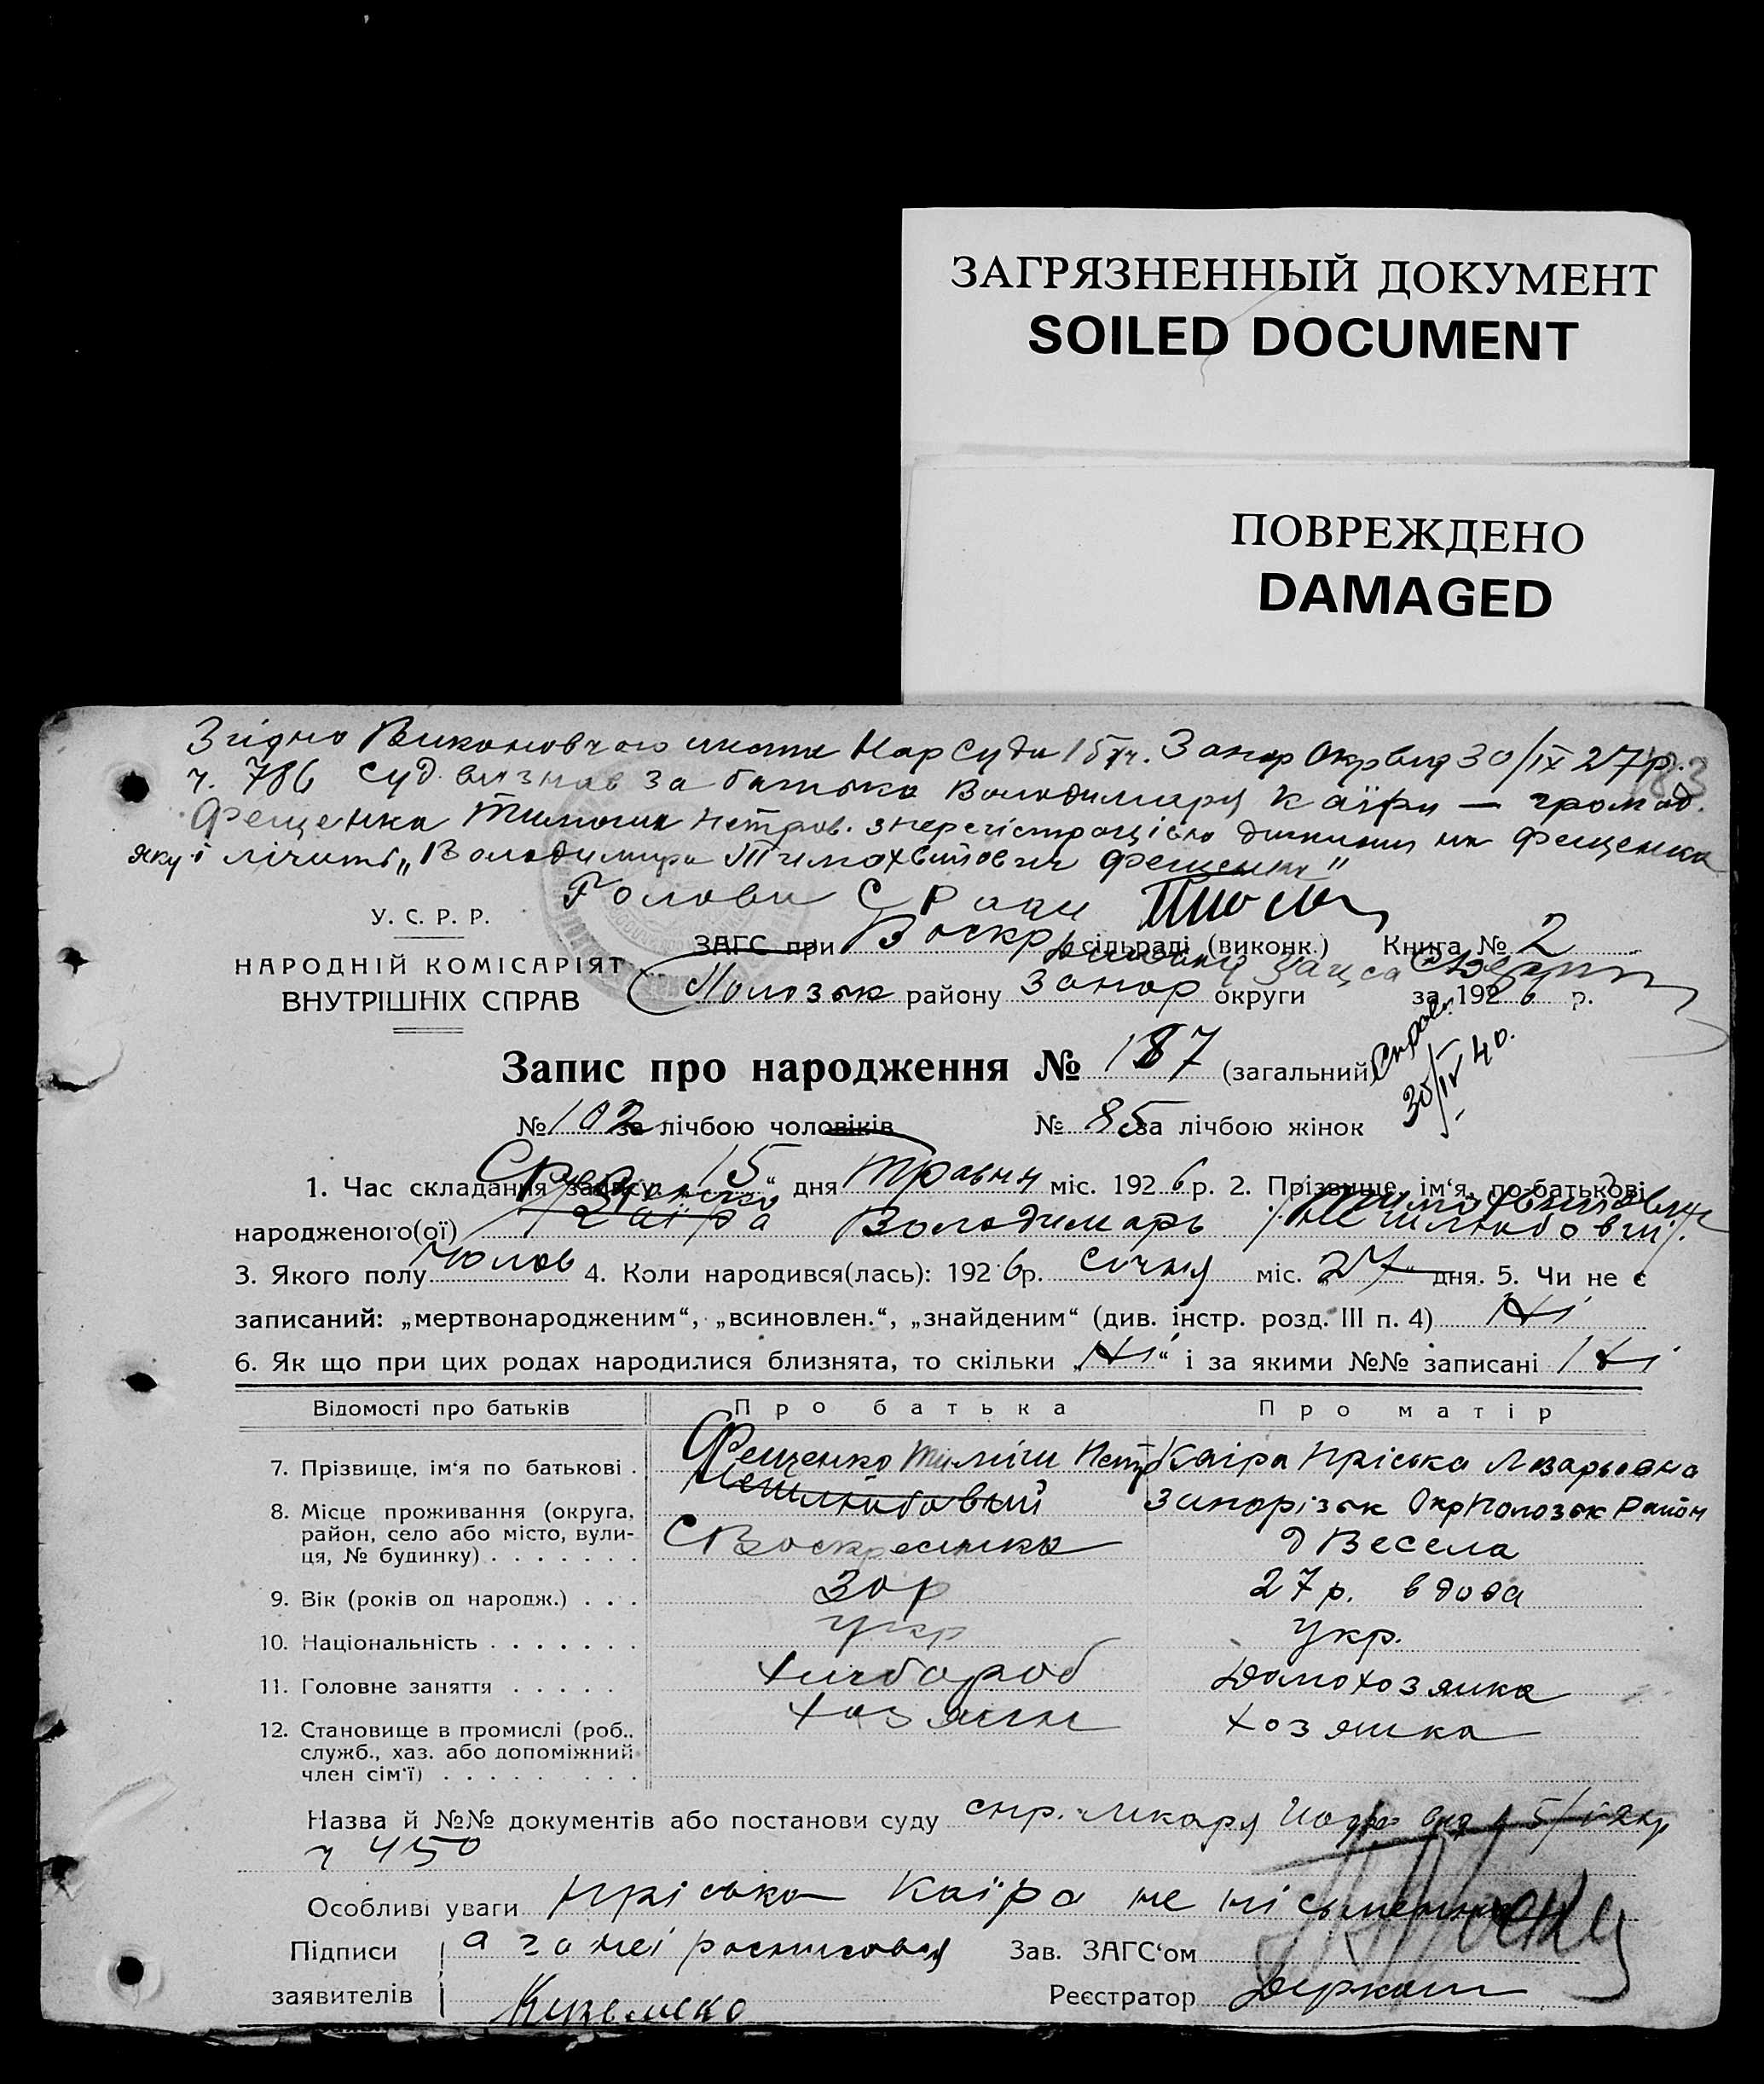 ЗАГРЯЗНЕННЫЙ ДОКУМЕНТ
SOILED DOCUMENT
ПОВРЕЖДЕНО
DAMAGED
183
Згідно Виконовчого листа НарСуда 15 уч. Запор Окр від 30/IX 27 р.
ч. 786 Суд визнав за батька Володимиря Каїри — громад.
Фещенка Тимоша Петров. з перегістрацією дитини на Фещенка
яку і лічить „Володимира Тимохвійович Фещенко"
Голови С Ради
У. С. Р. Р.
НАРОДНІЙ КОМІСАРІЯТ
ВНУТРІШНІХ СПРАВ
ЗАГС при Воскр сільраді (виконк.) Книга № 2
Полозьк району Запор округи за 1926 р.
Запис про народження № 187 (загальний)
30/IV 40.
№ 102 за лічбою чоловіків № 85 за лічбою жінок
1. Час складання запису „ 15 " дня Травня міс. 1926 р. 2. Прізвище, ім'я, по-батькові
народженого(ої) Каїра Володимарь
3. Якого полу чолов 4. Коли народився(лась): 1926 р. Січня міс. „27" дня. 5. Чи не є
записаний: „мертвонародженим", „всиновлен.", „знайденим" (див. інстр. розд. III п. 4) Ні
6. Як що при цих родах народилися близнята, то скільки „Ні" і за якими №№ записані Ні
Відомості про батьків Про батька Про матір
7. Прізвище, ім'я по батькові . Фещенко Тиміш Петр Каіра Пріська Лазарьовна
8. Місце проживання (округа, район, село або місто, вулиця, № будинку) . . . . . . . С Воскресенка Запорізьк Окр Полозьк Район
д Весела
9. Вік (років од народж.) . . . 30 р 27 р. вдова
10. Національність . . . . . . . Укр Укр.
11. Головне заняття . . . . . Хлібороб Домохозяйка
12. Становище в промислі (роб., служб., хаз. або допоміжний член сім'ї) . . . . . . . . Хозяин хозяйка
Назва й №№ документів або постанови суду спр. лікаря
ч 450
Особливі уваги Пріська Каїра не пісьменна
Підписи заявителів а за неї росписовся
Зав. ЗАГС'ом
Реєстратор Деркач